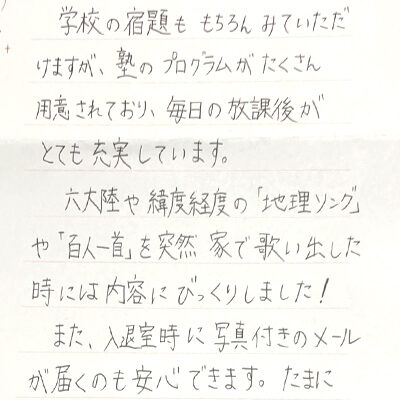 学校の宿題も もちろん みていただ
けますが、塾の プログラムが たくさん
用意されており、毎日の放課後が
とても充実しています。
六大陸や 緯度経度の「地理ソング」
や「百人一首」を突然 家で歌い出した
時には内容に びっくりしました！
また、入退室時に 写真付きのメール
が届くのも安心できます。たまに